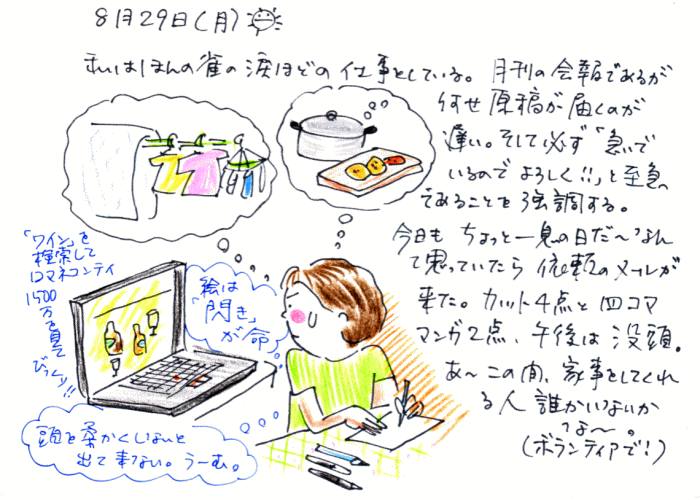 8月29日(月)
私はほんの雀の涙ほどの仕事をしている。月刊の会報であるが
何せ原稿が届くのが
遅い。そして必ず「急いで
いるのでよろしく!!」と至急
であることを強調する。
今日もちょっと一息の日だ〜なん
て思っていたら依頼のメールが
来た。カット4点と四コマ
マンガ2点、午後は没頭。
あ〜この間、家事をしてくれ
る人誰かいないか
な〜。
(ボランティアで!)
「ワイン」を
検索して
ロマネコンティ
1400
万を見て
びっくり!!
絵は
「閃き」
が命
頭を柔かくしないと
出て来ない。うーむ。